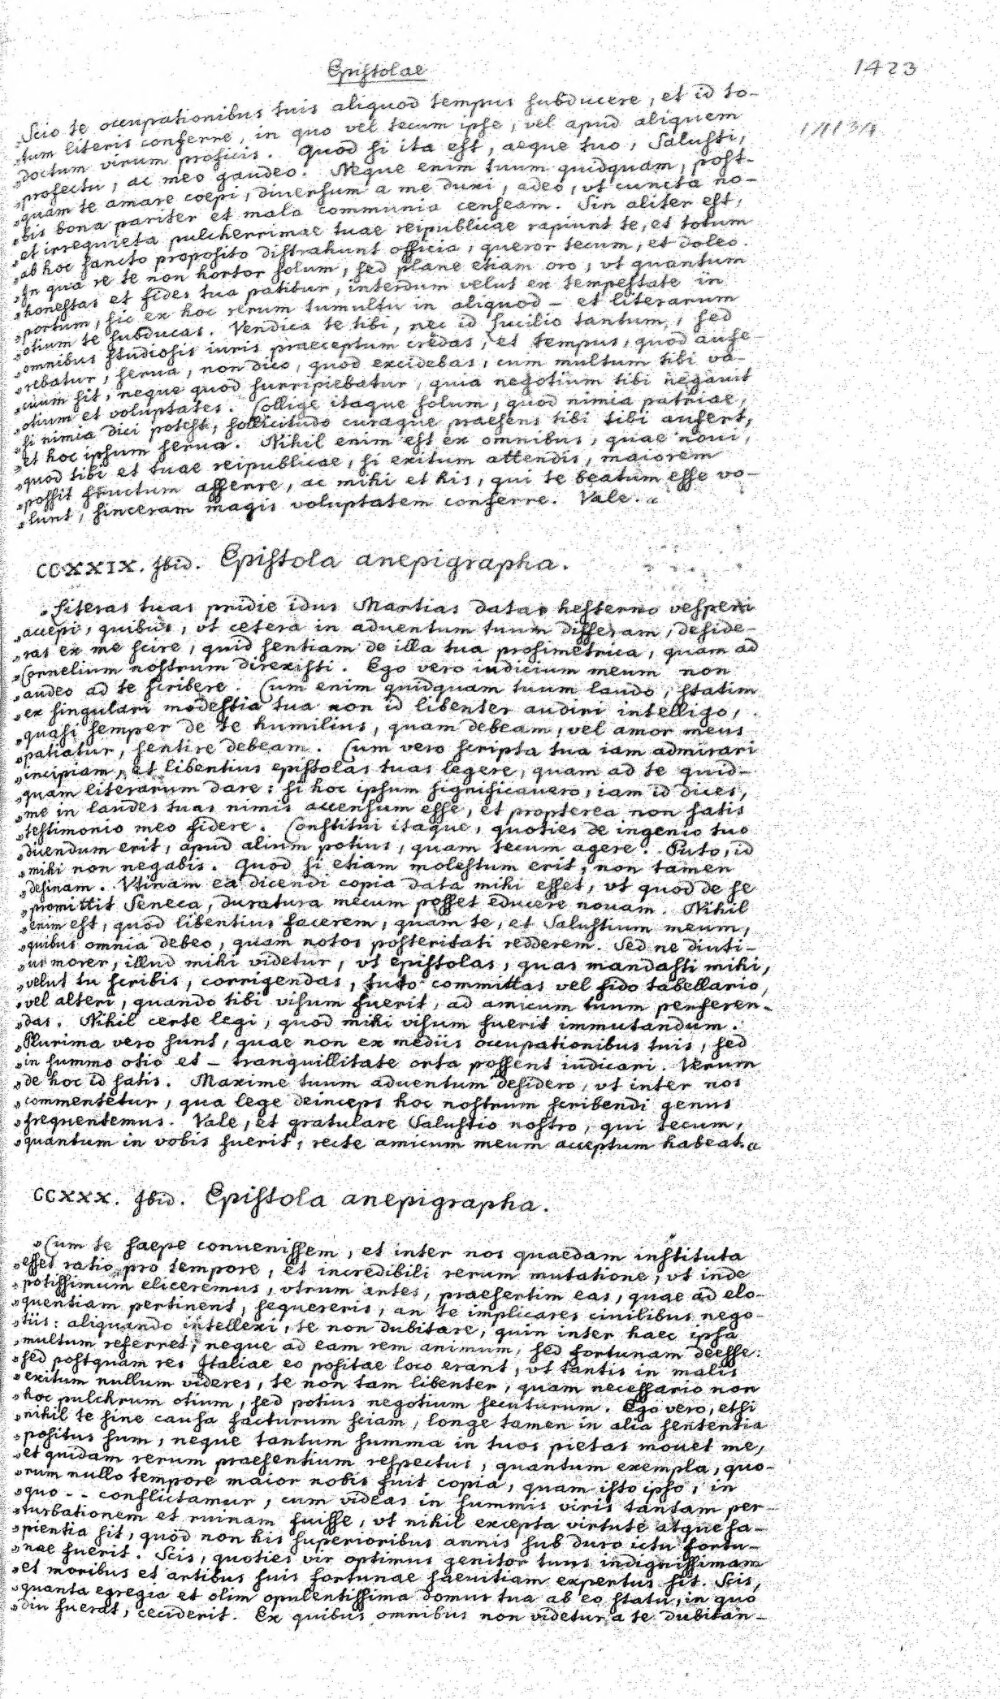 Epistolae
1423
„Scio te occupationibus tuis aliquod tempus subducere, et id to-
„tum literis conferre, in quo vel tecum ipse, vel apud aliquem
„doctum virum proficis. Quod si ita est, aeque tuo, Salusti,
„profectu, ac meo gaudeo. Neque enim tuum quidquam, post-
„quam te amare coepi, diversum a me duxi, adeo, vt cuncta no-
„bis bona pariter et mala communia censeam. Sin aliter est,
„et irrequieta pulcherrimae tuae reipublicae rapiunt te, et totum
„ab hoc sancto proposito distrahunt officia, queror tecum, et doleo.
„In qua re te non hortor solum, sed plane etiam oro, vt quantum
„honestas et fides tua patitur, interdum velut ex tempestate in
„portum, sic ex hoc rerum tumultu in aliquod - et literarum
„otium te subducas. Vendica te tibi, nec id Lucilio tantum, sed
„omnibus studiosis iuris praeceptum credas, et tempus, quod aufe-
„rebatur, serua, non dico, quod excidebas, cum multum tibi va-
„cuum sit, neque quod surripiebatur, quia negotium tibi negauit
„otium et voluptates. Collige itaque solum, quod nimia patriae,
„si nimia dici potest, sollicitudo curaque praesens tibi tibi aufert,
„et hoc ipsum serua. Nihil enim est ex omnibus, quae noui,
„quod tibi et tuae reipublicae, si exitum attendis, maiorem
„possit fructum afferre, ac mihi et his, qui te beatum esse vo-
„lunt, sinceram magis voluptatem conferre. Vale.“
CCXXIX. Ibid. Epistola anepigrapha.
„Literas tuas pridie idus Martias datas hesterno vesperi
„accepi, quibus, vt cetera in aduentum tuum differam, deside-
„ras ex me scire, quid sentiam de illa tua prosimetrica, quam ad
„Cornelium nostrum direxisti. Ego vero iudicium meum non
„audeo ad te scribere. Cum enim quidquam tuum laudo, statim
„ex singulari modestia tua non id libenter audiri intelligo,
„quasi semper de te humilius, quam debeam, vel amor meus
„patiatur, sentire debeam. Cum vero scripta tua iam admirari
„incipiam, et libentius epistolas tuas legere, quam ad te quid-
„quam literarum dare: si hoc ipsum significauero, iam id dices,
„me in laudes tuas nimis accensum esse, et propterea non satis
„testimonio meo fidere. Constitui itaque, quoties de ingenio tuo
„dicendum erit, apud alium potius, quam tecum agere. Puto, id
„mihi non negabis. Quod si etiam molestum erit, non tamen
„desinam. Vtinam ea dicendi copia data mihi esset, vt quod de se
„promittit Seneca, duratura mecum posset educere nouam. Nihil
„enim est, quod libentius facerem, quam te, et Salustium meum,
„quibus omnia debeo, quam notos posteritati redderem. Sed ne diuti-
„us morer, illud mihi videtur, vt epistolas, quas mandasti mihi,
„velut tu scribis, corrigendas, tuto committas vel fido tabellario,
„vel alteri, quando tibi visum fuerit, ad amicum tuum perferen-
„das. Nihil certe legi, quod mihi visum fuerit immutandum.
„Plurima vero sunt, quae non ex mediis occupationibus tuis, sed
„in summo otio et - tranquillitate orta possent iudicari. Verum
„de hoc id satis. Maxime tuum aduentum desidero, vt inter nos
„commentetur, qua lege deinceps hoc nostrum scribendi genus
„frequentemus. Vale, et gratulare Salustio nostro, qui tecum,
„quantum in vobis fuerit, recte amicum meum acceptum habeat.“
CCXXX. Ibid. Epistola anepigrapha.
„Cum te saepe conuenissem, et inter nos quaedam instituta
„esset ratio pro tempore, et incredibili rerum mutatione, vt inde
„potissimum eliceremus, vtrum artes, praesertim eas, quae ad elo-
„quentiam pertinent, sequereris, an te implicares ciuilibus nego-
„tiis: aliquando intellexi, te non dubitare, quin inter haec ipsa
„multum referret, neque ad eam rem animum, sed fortunam deesse:
„sed postquam res Italiae eo positae loco erant, vt tantis in malis
„exitum nullum videres, te non tam libenter, quam necessario non
„hoc pulchrum otium, sed potius negotium secuturum. Ego vero, etsi
„nihil te sine causa facturum sciam, longe tamen in alia sententia
„positus sum, neque tantum summa in tuos pietas mouet me,
„et quidam rerum praesentium respectus, quantum exempla, quo-
„rum nullo tempore maior nobis fuit copia, quam isto ipso, in
„quo - - conflictamur, cum videas in summis viris tantam per-
„turbationem et ruinam fuisse, vt nihil excepta virtute atque sa-
„pientia sit, quod non his superioribus annis sub duro ictu fortu-
„nae fuerit. Scis, quoties vir optimus genitor tuus indignissimam
„et moribus et artibus suis fortunae saeuitiam expertus sit. Scis,
„quanta egregia et olim opulentissima domus tua ab eo statu, in quo
„diu fuerat, ceciderit. Ex quibus omnibus non videtur a te dubitan-